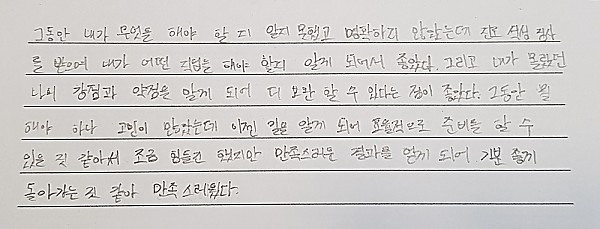 그동안 내가 무엇을 해야 할 지 알지 못했고 명확하지 않았는데 진로 적성 검사
를 받으며 내가 어떤 직업을 해야 할지 알게 되어서 좋았다. 그리고 내가 몰랐던
나의 강점과 약점을 알게 되어 더 보완 할 수 있다는 점이 좋았다. 그동안 뭘
해야 하나 고민이 많았는데 어떤 일을 알게 되어 효율적으로 준비를 할 수
있을 것 같아서 조금 힘들긴 했지만 만족스러운 결과를 얻게 되어 기분 좋게
돌아가는 것 같아 만족스러웠다.